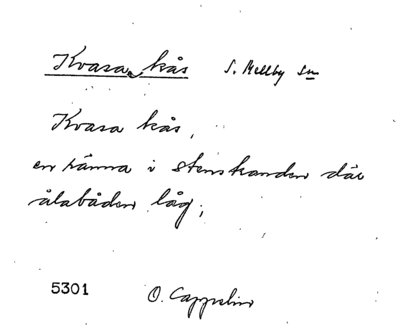 Kvasa kås S. Mellby sn
Kvasa kås,
en ränna i stenskanden där
ålabåden låg;
5301 O. Cappelin